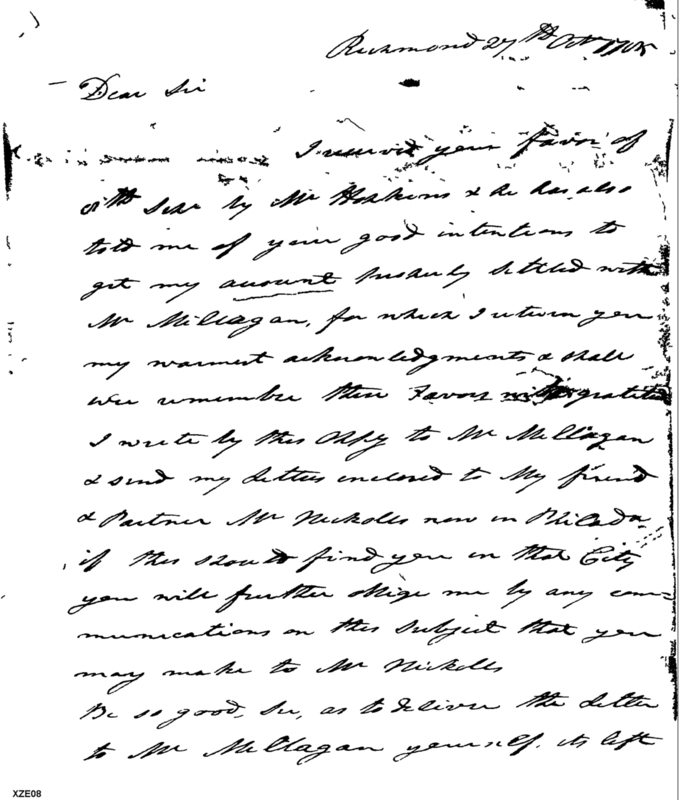 Richmond 27th Octr
Dear Sir
I received your favor of
8th by Mr Hopkins & he has also
told me of your good intentions to
get my account properly settled with
Mr McClagan, for which I return you
my warmest acknowledgments & shall
ever remember these Favors with gratitude
I write by this Oppy to Mr McClagan
& send my Letters enclosed to My friend
& Partner Mr Nickolls now in Philada
if this should find you in that City
you will further oblige me by any com=
munications on this Subject that you
may make to Mr Nickolls
Be so good, Sir, as to deliver the Letter
to Mr McClagan yourself. its left
XZE08